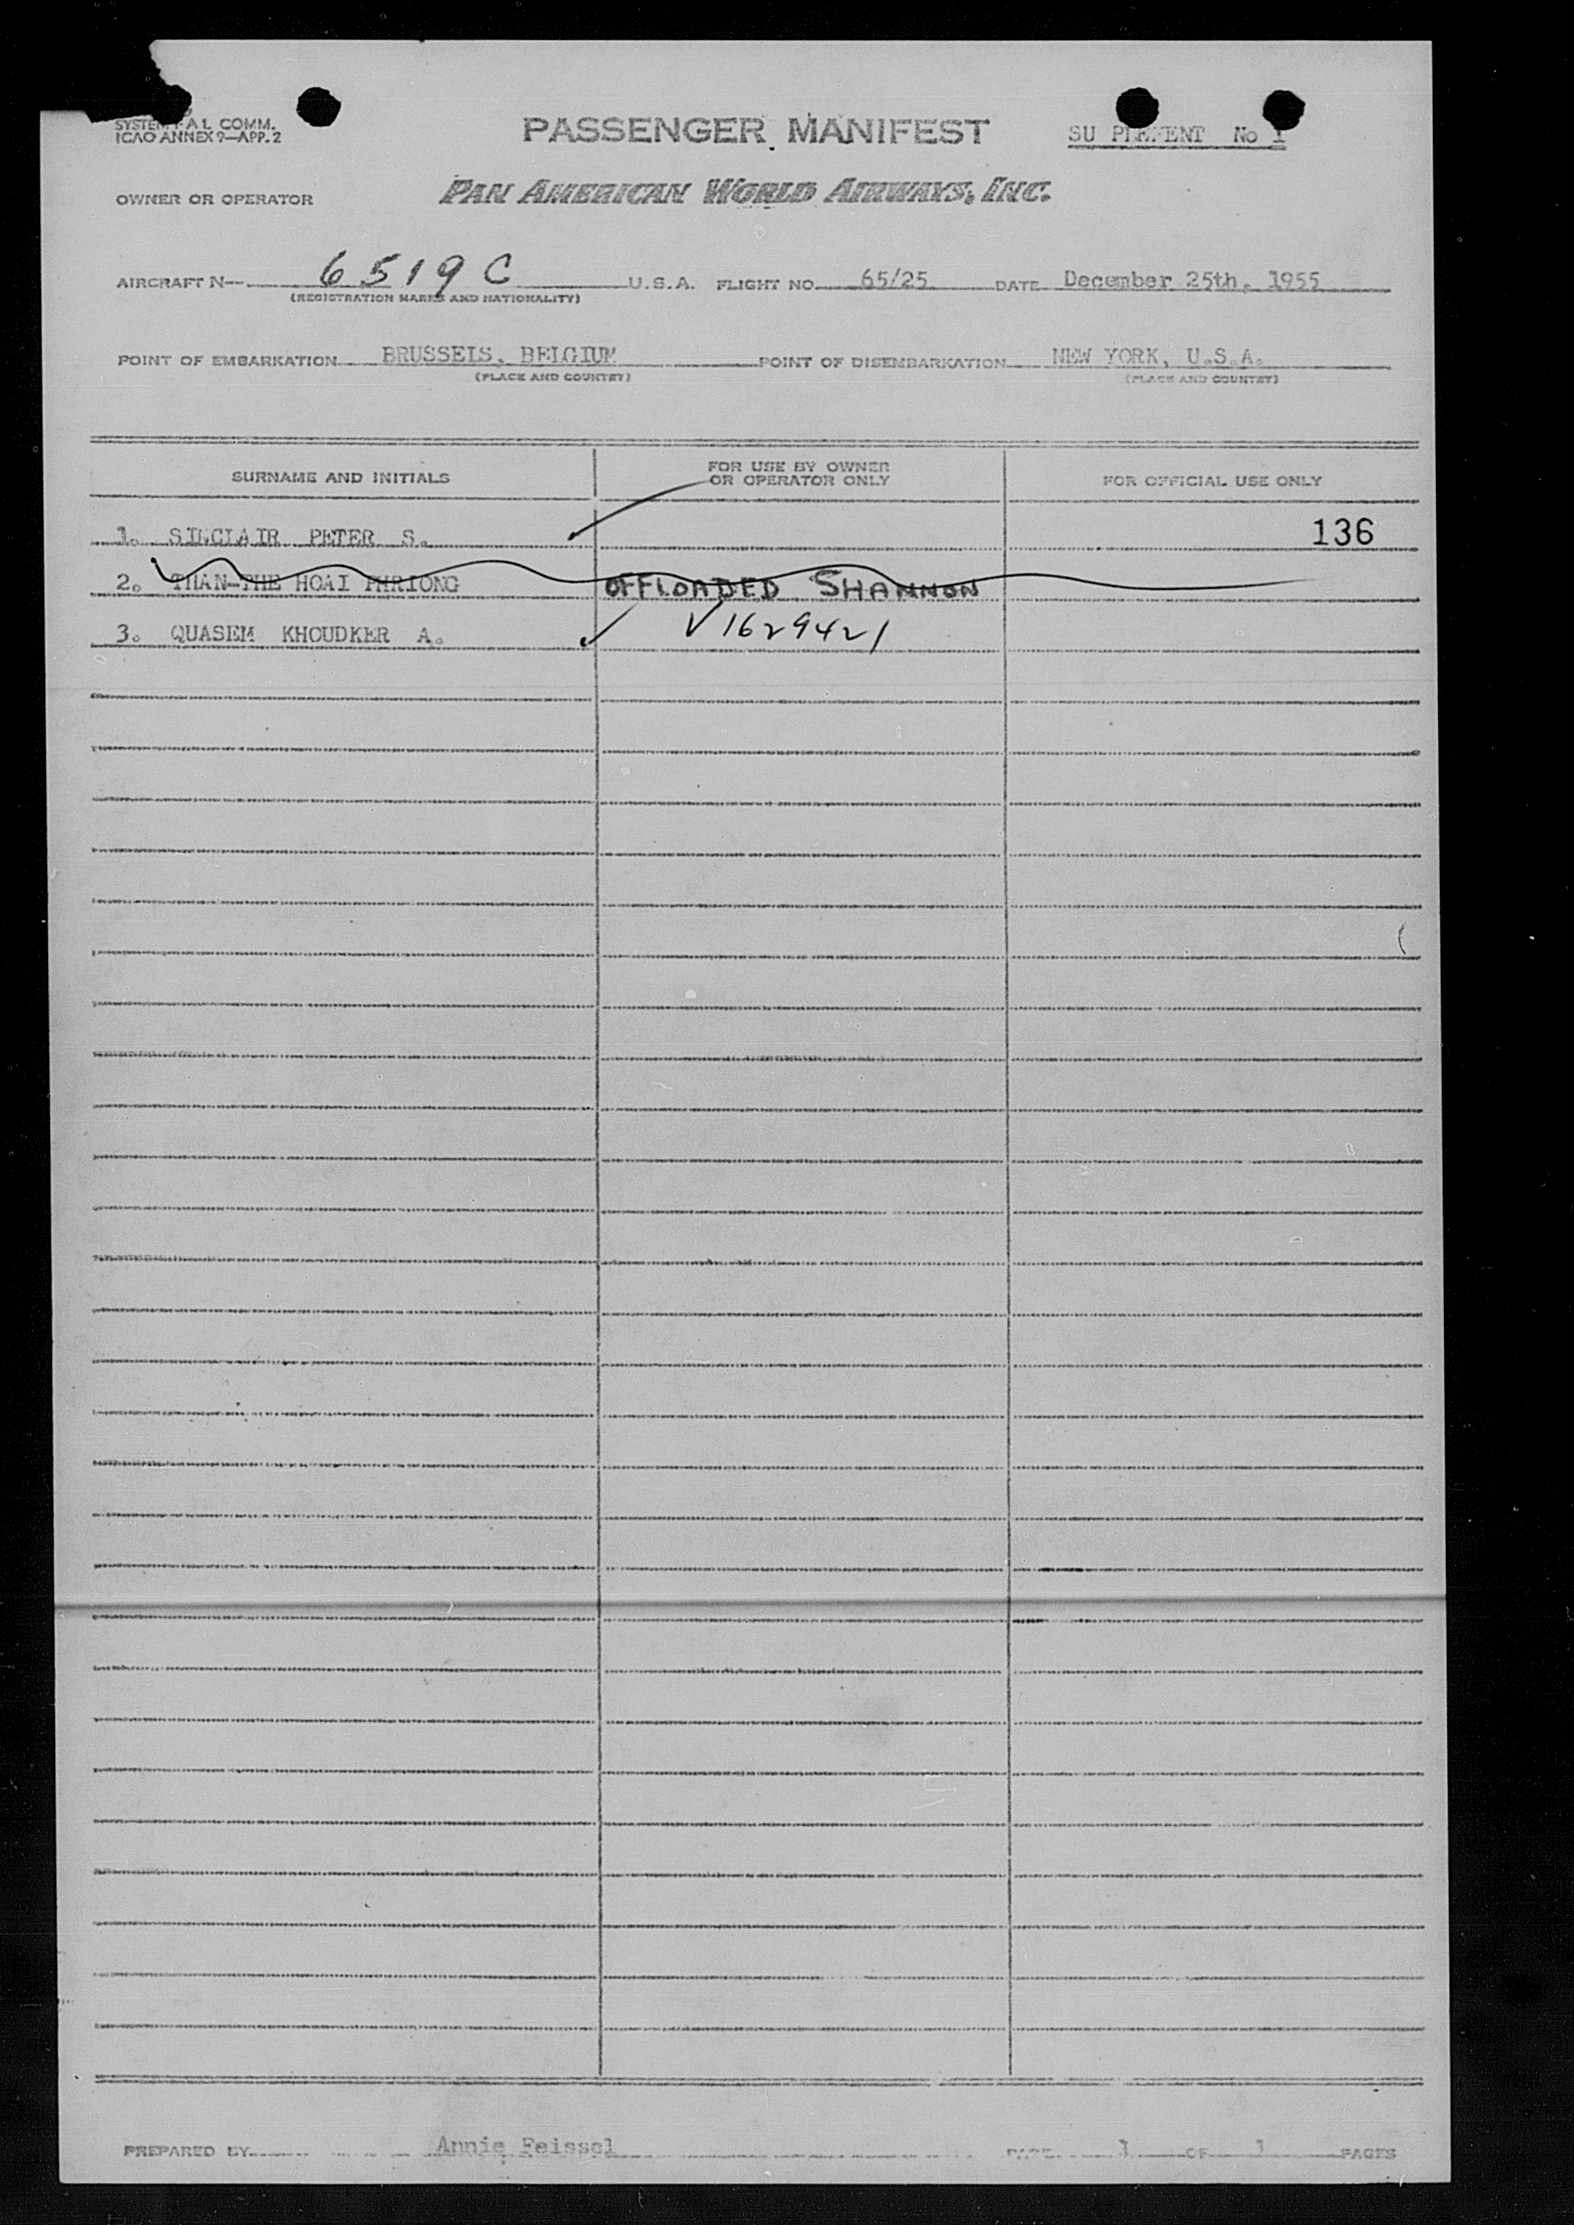 SYSTEM F A L COMM.
ICAO ANNEX 9—APP. 2
PASSENGER MANIFEST
SU PLEMENT No 1
OWNER OR OPERATOR
PAN AMERICAN WORLD AIRWAYS, INC.
AIRCRAFT N— 6519C U.S.A. FLIGHT NO. 65/25 DATE December 25th, 1955
(REGISTRATION MARKS AND NATIONALITY)
POINT OF EMBARKATION BRUSSELS, BELGIUM POINT OF DISEMBARKATION NEW YORK, U.S.A.
(PLACE AND COUNTRY) (PLACE AND COUNTRY)
SURNAME AND INITIALS FOR USE BY OWNER OR OPERATOR ONLY FOR OFFICIAL USE ONLY
1. SINCLAIR PETER S. 136
2. THAN-THE HOAI PHRIONG OFFLOADED SHANNON
3. QUASEM KHOUDKER A. V1629421
PREPARED BY Annie Feissel PAGE 1 OF 1 PAGES